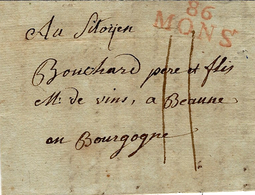 86
MONS
Au Citoyen
Bouchard pere et fils
Md. de vins, a Beaune
en Bourgogne